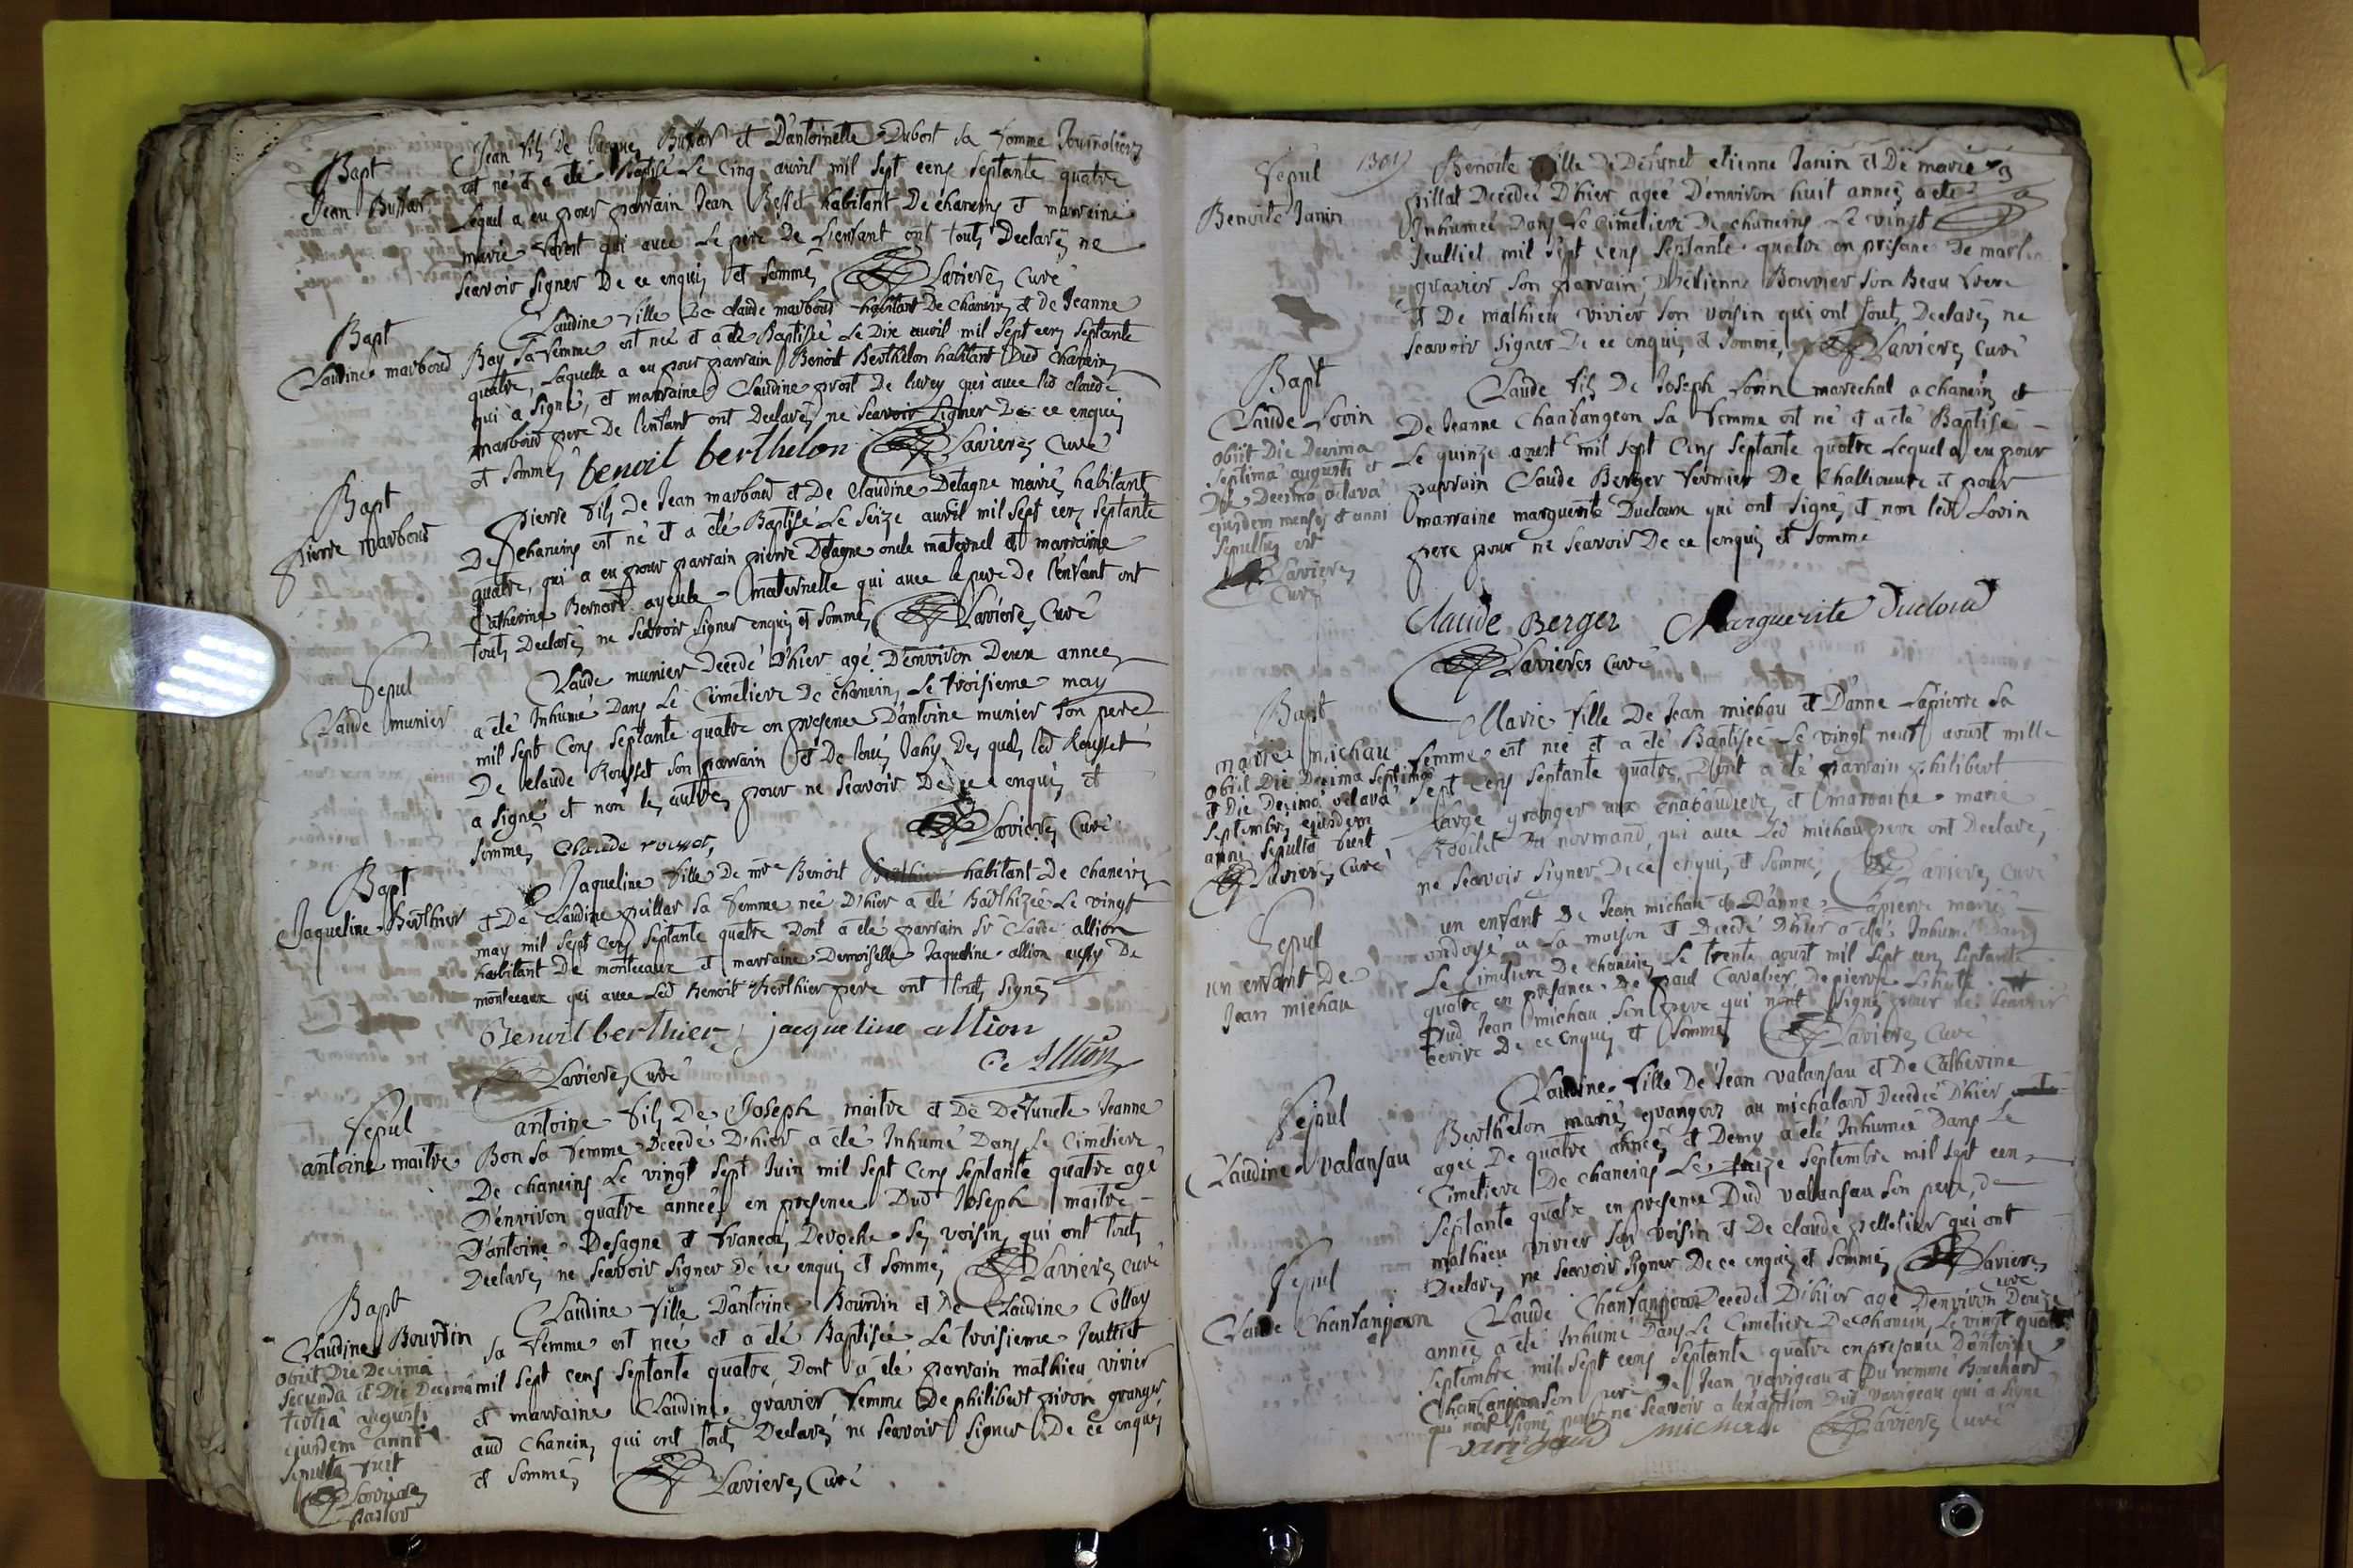 Bapt
Jean Buffar
Jean fils de Jacques Buffar et D'antoinette Dubost sa femme Journaliers
est né et a été Baptisé Le Cinq avril mil sept cens septante quatre
Lequel a eu pour parrain Jean habitant De chaneins et marraine
marie qui avec Le pere De L'enfant ont touts Declarés ne
scavoir signer De ce enquis et sommés Lavieres Curé
Bapt
Claudine marboud
Claudine fille De claude marboud habitant De Chaneins et de Jeanne
Bay sa femme est née et a été Baptisée Le Dix avril mil sept cens septante
quatre, Laquelle a eu pour parrain Benoit Berthelon habitant Dud Chaneins
qui a signé, et marraine Claudine prost De livrey qui avec led claude
marboud pere De L'enfant ont Declarés ne scavoir signer De ce enquis
et sommés benoit berthelon Lavieres Curé
Bapt
Pierre marboud
Pierre fils De Jean marboud et De Claudine Detagne mariés habitants
De chaneins est né et a été Baptisé Le seize avril mil sept cens septante
quatre, qui a eu pour parrain pierre Detagne oncle maternel et marraine
Catherine Bernard ayeule maternelle qui avec le pere de L'enfant ont
touts Declarés ne scavoir signer enquis et sommés Lavieres Curé
Sepul
Claude munier
Claude munier Decedé D'hier agé D'environ Deux années
a été Inhumé Dans Le Cimetiere De chaneins Le troisieme may
mil sept Cens septante quatre en presence D'antoine munier son pere
De Claude Rousset son parrain et De louis Jahy Des quels led Rousset
a signé et non les autres pour ne scavoir De ce enquis et
sommés Claude rousset, Lavieres Curé
Bapt
Jaqueline Berthier
Jaqueline fille De mre Benoit habitant De chaneins
et De Claudine peillar sa femme née D'hier a été Badthizée Le vingt
may mil sept Cens septante quatre Dont a été parrain sr Claude allion
habitant De montceaux et marraine Demoiselle Jaqueline allion aussy De
montceaux qui avec Led Benoit Berthier pere ont touts signés
Benoit berthier jacqueline allion
Ce Allion
Lavieres Curé
Sepul
antoine maitre
antoine fils De Joseph maitre et De Defuncte Jeanne
Bon sa femme Decedé D'hier a été Inhumé Dans Le Cimetiere
De chaneins Le vingt sept Juin mil sept Cens septante quatre agé
D'environ quatre années en presence Dud Joseph maitre
D'antoine Desagne et francois Devoche ses voisins qui ont touts
Declarés ne scavoir signer De ce enquis et sommés Lavieres curé
Bapt
Claudine Bourdin
obiit Die Decima
secunda et Die Decima
tertia augusti
ejusdem anni
sepulta fuit
Lavieres
pastor
Claudine fille D'antoine Bourdin et De Claudine Collay
sa femme est née et a été Baptisée Le troisieme Jeulliet
mil sept cens septante quatre, Dont a été parrain mathieu vivier
et marraine Claudine gravier femme De philibert pivon granger
aud Chaneins qui ont touts Declarés ne scavoir signer De ce enquis
et sommés Lavieres Curé
Sepul
Benoite Janin
Benoite fille De Defunct etienne Janin et De marie
pillat Decedée D'hier ageé D'environ huit années a été
Inhumée Dans Le Cimetiere De chaneins Le vingt
Jeulliet mil sept cens septante quatre en presance De
gravier son parrain, D'hetienne Bouvier son Beau frere
et De mathieu vivier son voisin qui ont touts Declarés ne
scavoir signer De ce enquis et sommés, Lavieres Curé
Bapt
Claude Lovin
obiit Die Decima
septima augusti et
Die Decima octava
ejusdem mensis et anni
sepultus est
Lavieres
Curé
Claude fils De Joseph Lovin marechal a chaneins et
De Jeanne Chanbangeon sa femme est né et a été Baptisé
Le quinze aoust mil sept Cens septante quatre Lequel a eu pour
parrain Claude Berger fermier De Challiouvre et pour
marraine marguerite Ducloux qui ont signés et non ledt Lovin
pere pour ne scavoir De ce enquis et sommé
Claude Berger Marguerite Ducloud
Lavieres Curé
Bapt
marie michau
obiit Die Decima septima
et Die Decima octava
septembris ejusdem
anni sepulta fuit
Lavieres Curé
Marie fille De Jean michau et D'anne Lapierre sa
femme est née et a été Baptisée Le vingt neuf aoust mille
sept cens septante quatre, Dont a été parrain philibert
farge granger aux et marraine marie
qui avec Led michau pere ont Declarés
ne scavoir signer De ce enquis et sommés, Lavieres Curé
Sepul
un enfant De
Jean michau
un enfant De Jean michau et D'anne Lapierre mariés
ondoyé a La maison et Decedé D'hier a été Inhumé Dans
Le Cimetiere De chaneins Le trente aoust mil sept cens septante
quatre en presance De paul Cavalier, De pierre et
Dud Jean michau son pere qui n'ont signés pour ne scavoir
ecrire De ce enquis et sommés Lavieres Curé
Sepul
Claudine valansau
Claudine fille De Jean valansau et De Catherine
Berthelon mariés grangers au michalard Decedée D'hier
ageé De quatre années et Demy a été Inhumée Dans Le
Cimetiere De chaneins Le seize septembre mil sept cens
septante quatre en presence Dud valansau son pere, de
mathieu vivier son voisin et De claude pelletier qui ont
Declarés ne scavoir signer De ce enquis et sommés Lavieres
Curé
Sepul
Claude Chantanjeon
Claude Chantanjeon Decedé D'hier agé D'environ Douze
années a été Inhumé Dans Le Cimetiere De chaneins Le vingt quatre
septembre mil sept cens septante quatre en presance D'antoine
Chantanjeon son pere De Jean varigeau et Du nommé Bouchard
qui n'ont signés pour ne scavoir a l'exception Dud varigeau qui a signé
Lavieres Curé